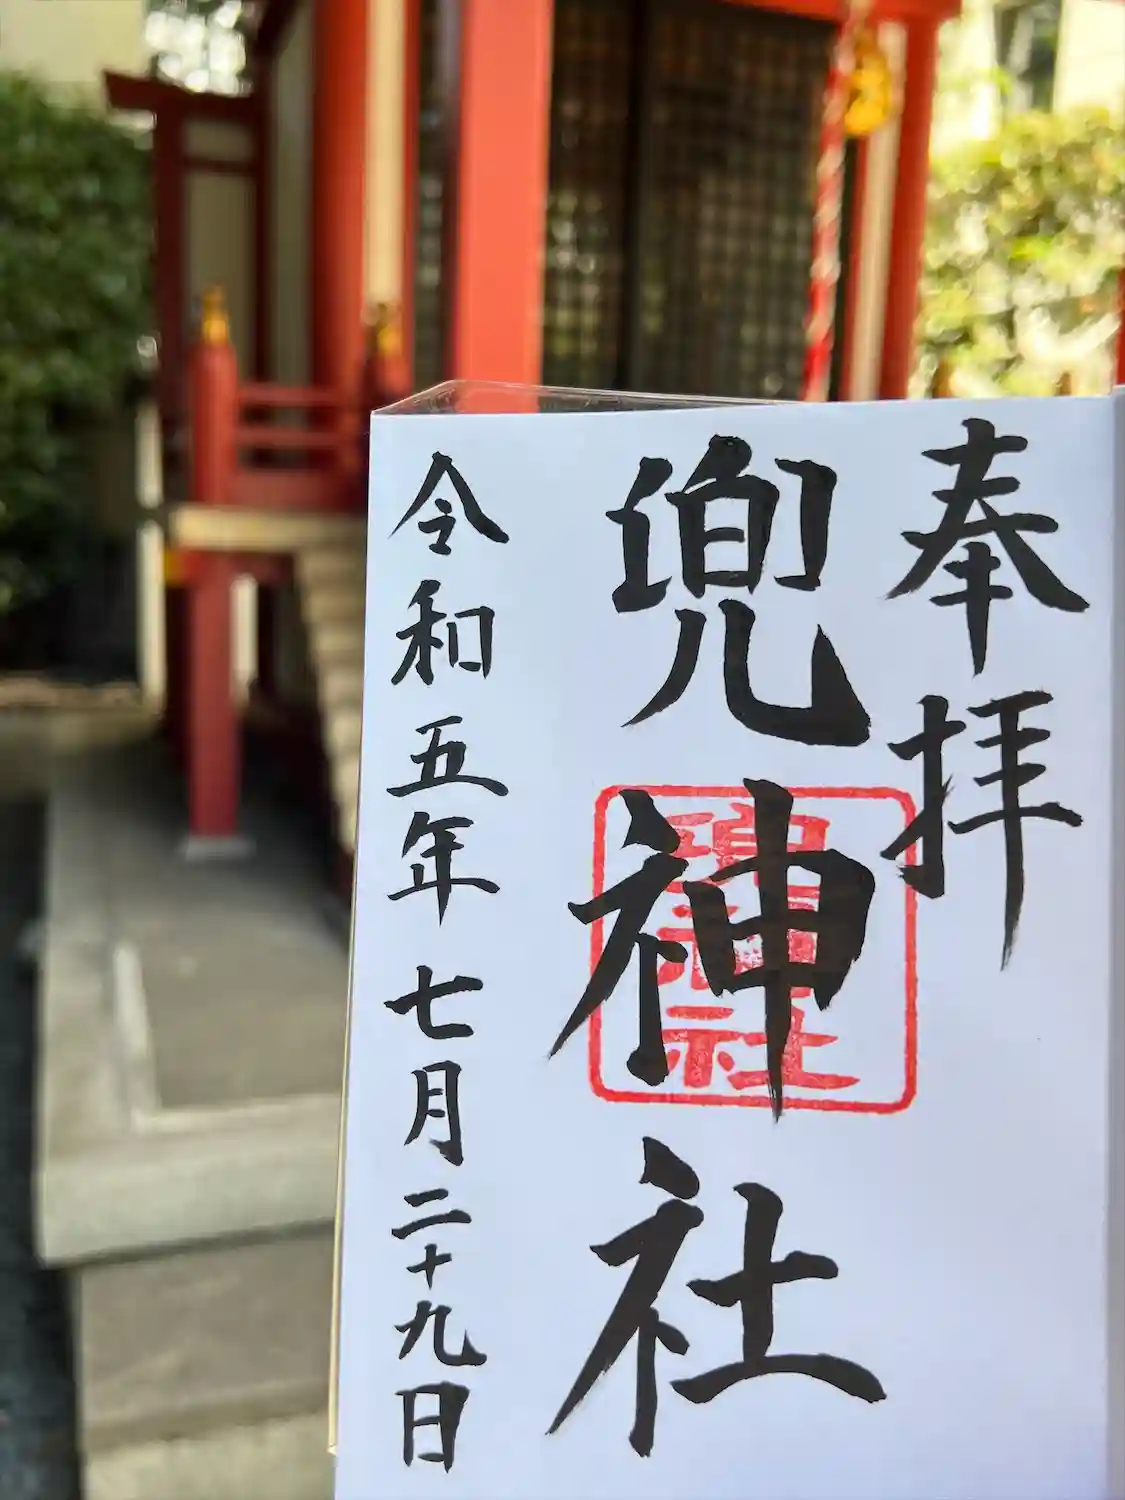 奉拝
兜神社
兜神社
令和五年七月二十九日